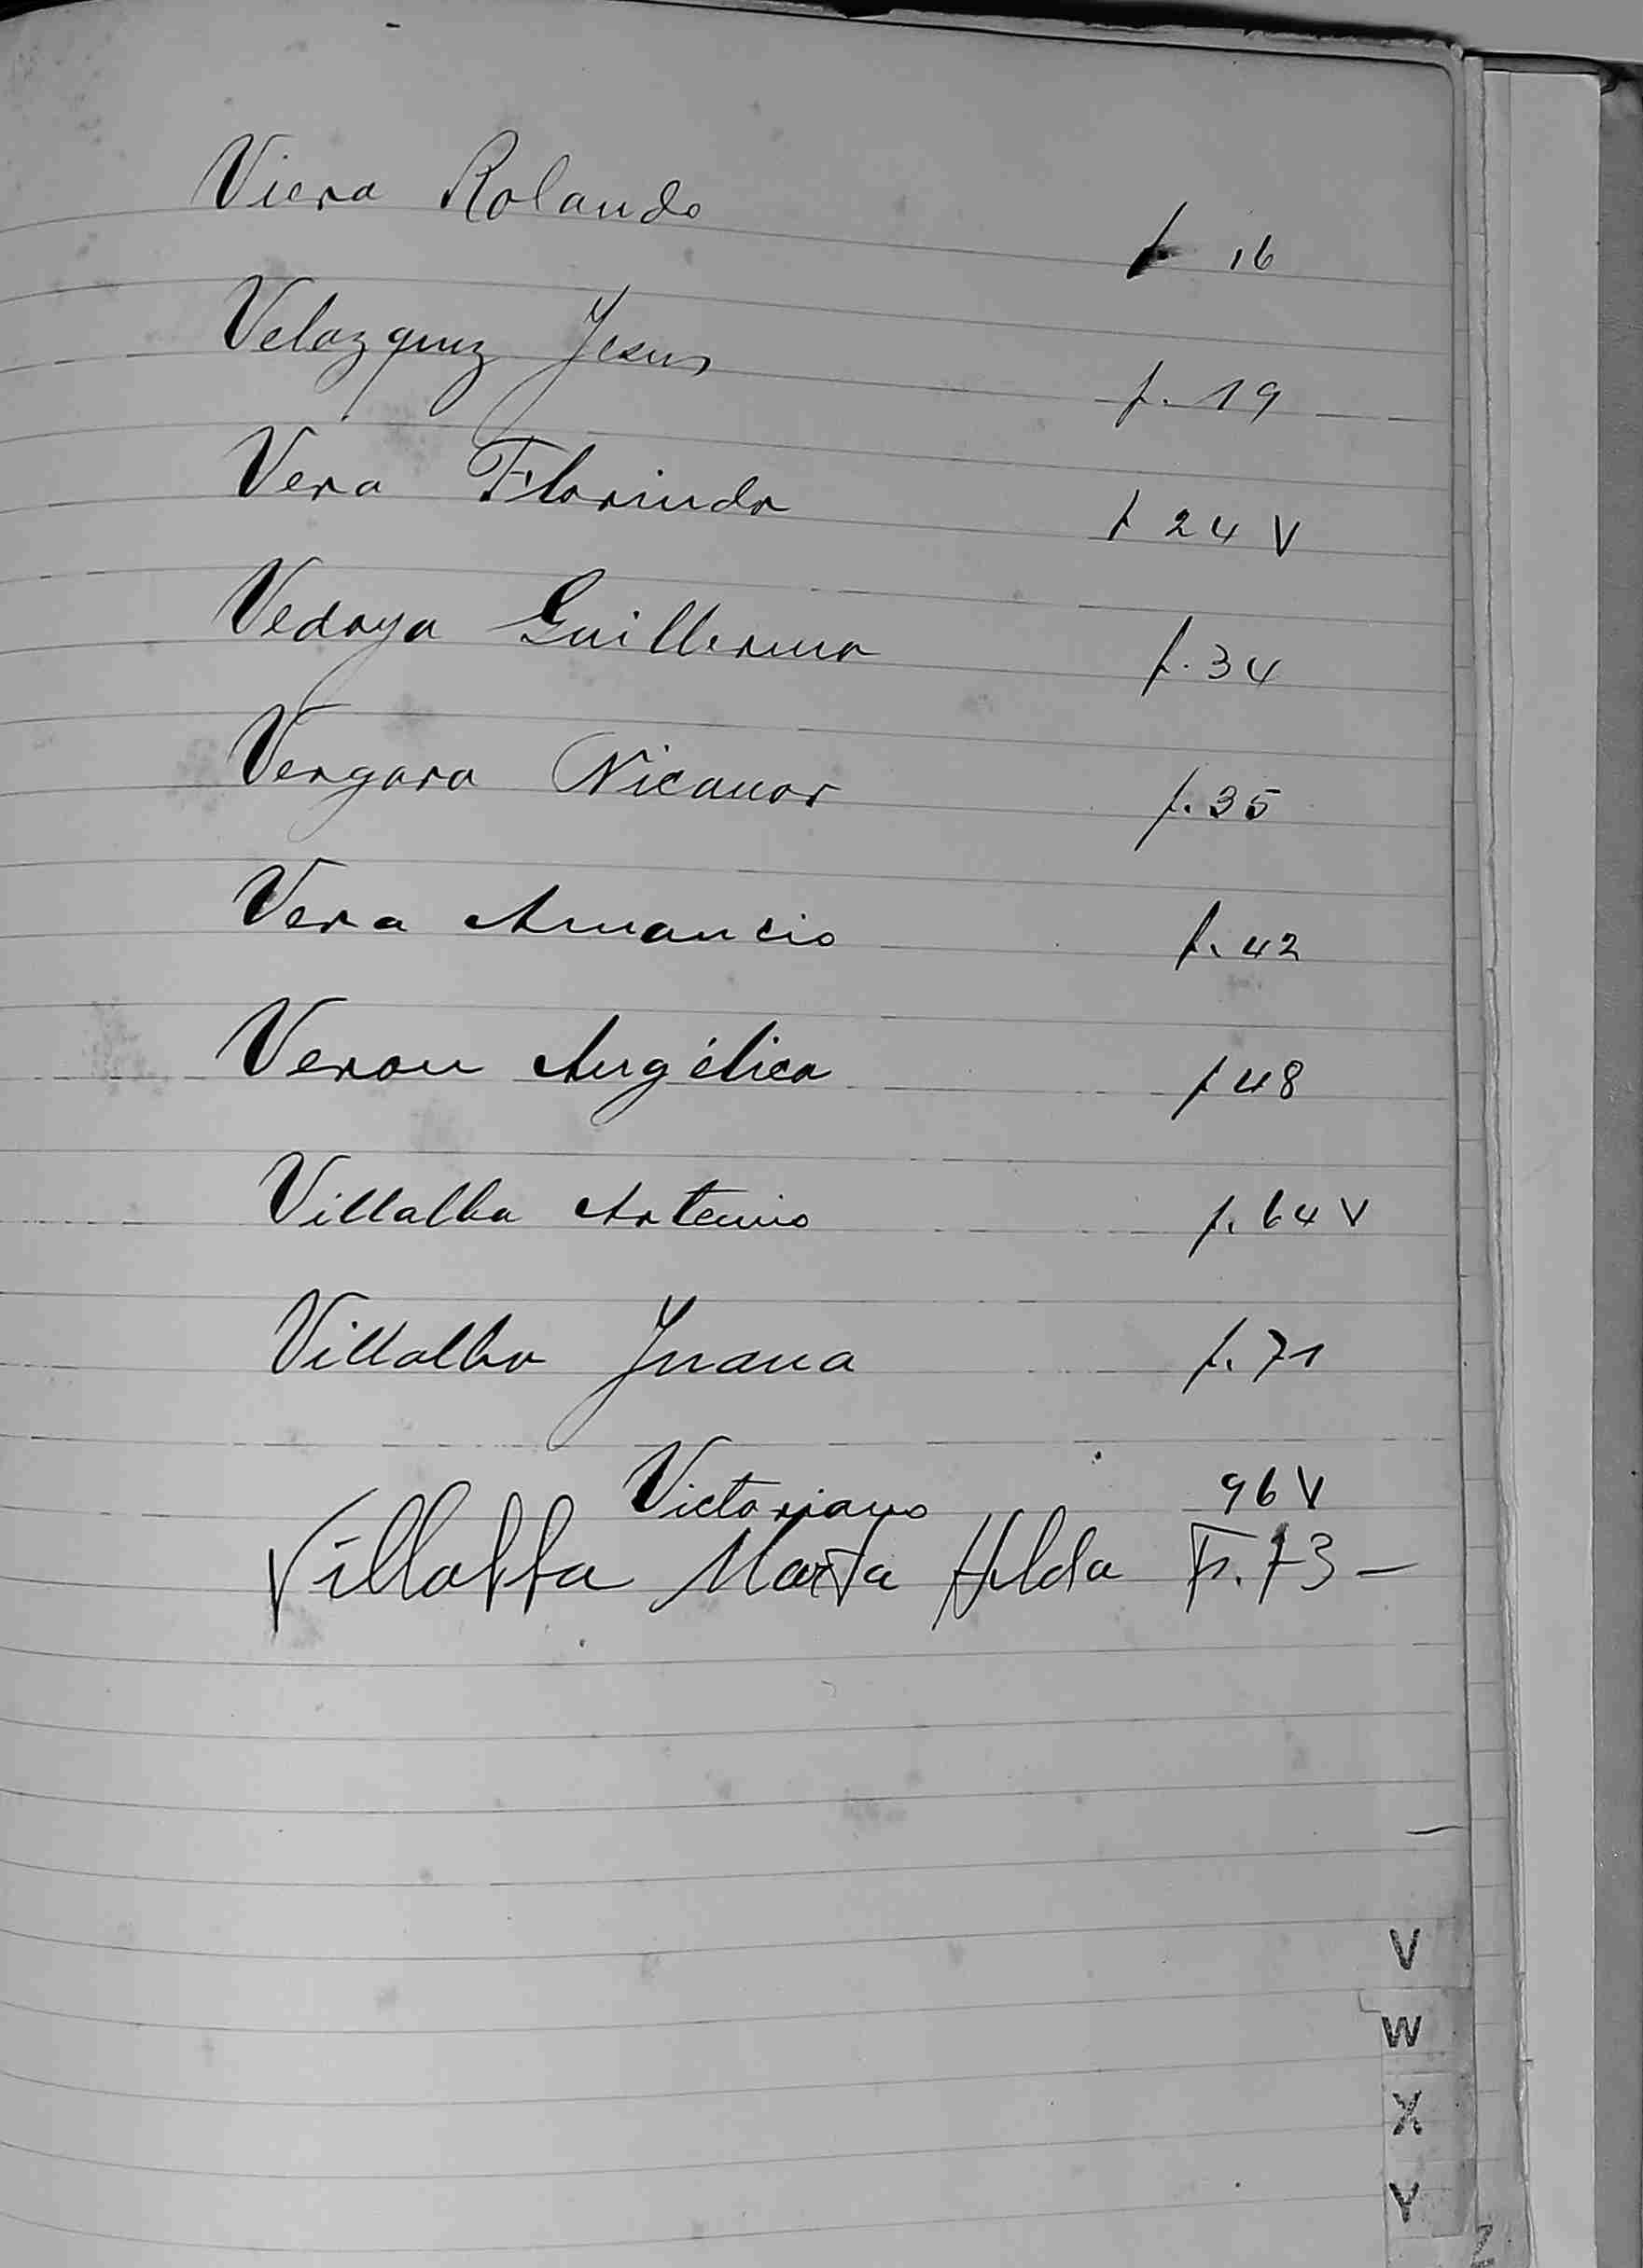 Viera Rolando f 16
Velazquez Jesus f. 19
Vera Florindo f 24 V
Vedoya Guillermo f. 34
Vergara Nicanor f. 35
Vera Amancio f. 42
Veron Angélica f 48
Villalba Artemio f. 64 V
Villalba Juana f. 71
Victoriano 96 V
Villalba Marta Hilda Fº. 73 -
V
W
X
Y
Z